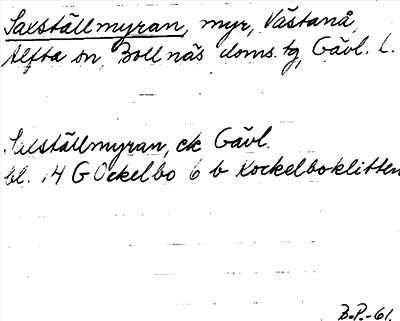 Saxställmyran, myr, Västanå,
Alfta sn, Bollnäs doms. tg, Gävl. L.
Saxställmyran, ek Gävl.
bl. 14 G Ockelbo 6 b Kockelboklitten
B.P.-61.